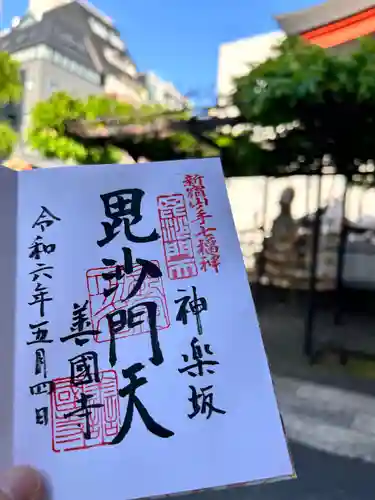 新宿山ノ手七福神
神楽坂
毘沙門天
善國寺
令和六年五月四日